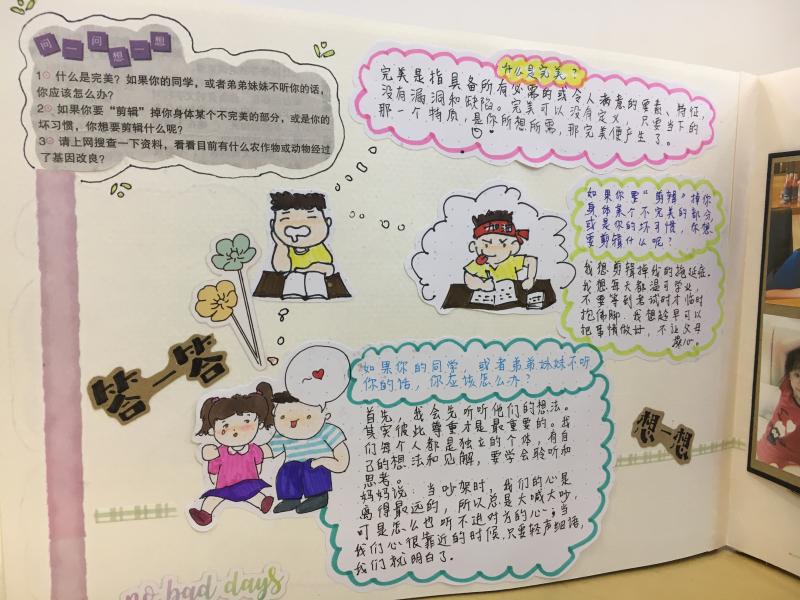 问一问想一想
1 什么是完美？如果你的同学，或者弟弟妹妹不听你的话，
你应该怎么办？
2 如果你要“剪辑”掉你身体某个不完美的部分，或是你的
坏习惯，你想要剪辑什么呢？
3 请上网搜查一下资料，看看目前有什么农作物或动物经过
了基因改良？
什么是完美？
完美是指具备所有必需的或令人满意的要素、特征，
没有漏洞和缺陷。完美可以没有定义，只要当下的
那一个特质，是你所想所需，那完美便产生了。
如果你要“剪辑”掉你
身体某个不完美的部分，
或是你的坏习惯，你想
要剪辑什么呢？
我想剪辑掉我的拖延症。
我想每天都温习学业，
不要等到考试时才临时
抱佛脚。我想趁早可以
把事情做好，不让父母
操心。
答一答
如果你的同学，或者弟弟妹妹不听
你的话，你应该怎么办？
首先，我会先听听他们的想法。
其实彼此尊重才是最重要的。我
们每个人都是独立的个体，有自
己的想法和见解，要学会聆听和
思考。
妈妈说：当吵架时，我们的心是
离得最远的，所以总是大喊大吵，
可是怎么也听不进对方的心；当
我们心很靠近的时候，只要轻声细语，
我们就明白了。
想一想
no bad days